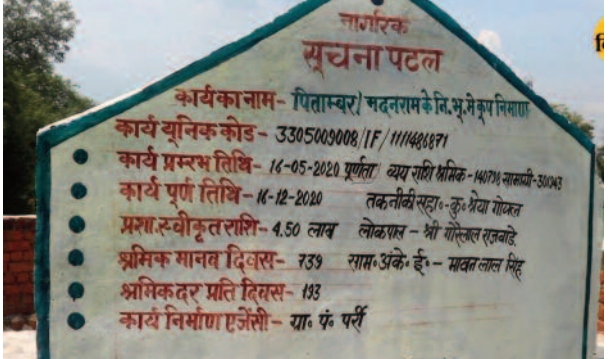 नागरिक
सूचना पटल
कार्य का नाम - पिताम्बर/ मदनराम के नि. भू. मे कूप निर्माण
कार्य यूनिक कोड - 3305009008/IF/1111486871
कार्य प्रारम्भ तिथि - 16-05-2020 पूर्णता/ व्यय राशि श्रमिक - 140798 सामाग्री -
कार्य पूर्ण तिथि - 16-12-2020 तकनीकी सहा॰ - कु॰ श्रेया गोयल
प्रशा. स्वीकृत राशि - 4.50 लाख लोकपाल - श्री गौरेलाल राजवाडे
श्रमिक मानव दिवस - 739 साम॰ अंके॰ ई॰ - लाल सिंह
श्रमिक दर प्रति दिवस - 193
कार्य निर्माण एजेंसी - ग्रा॰ पं॰ पर्री